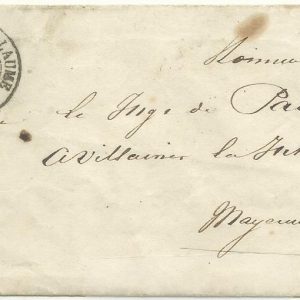 LAUME
Monsieu
le Juge de Pai
a Villaines la Juh
Mayenn